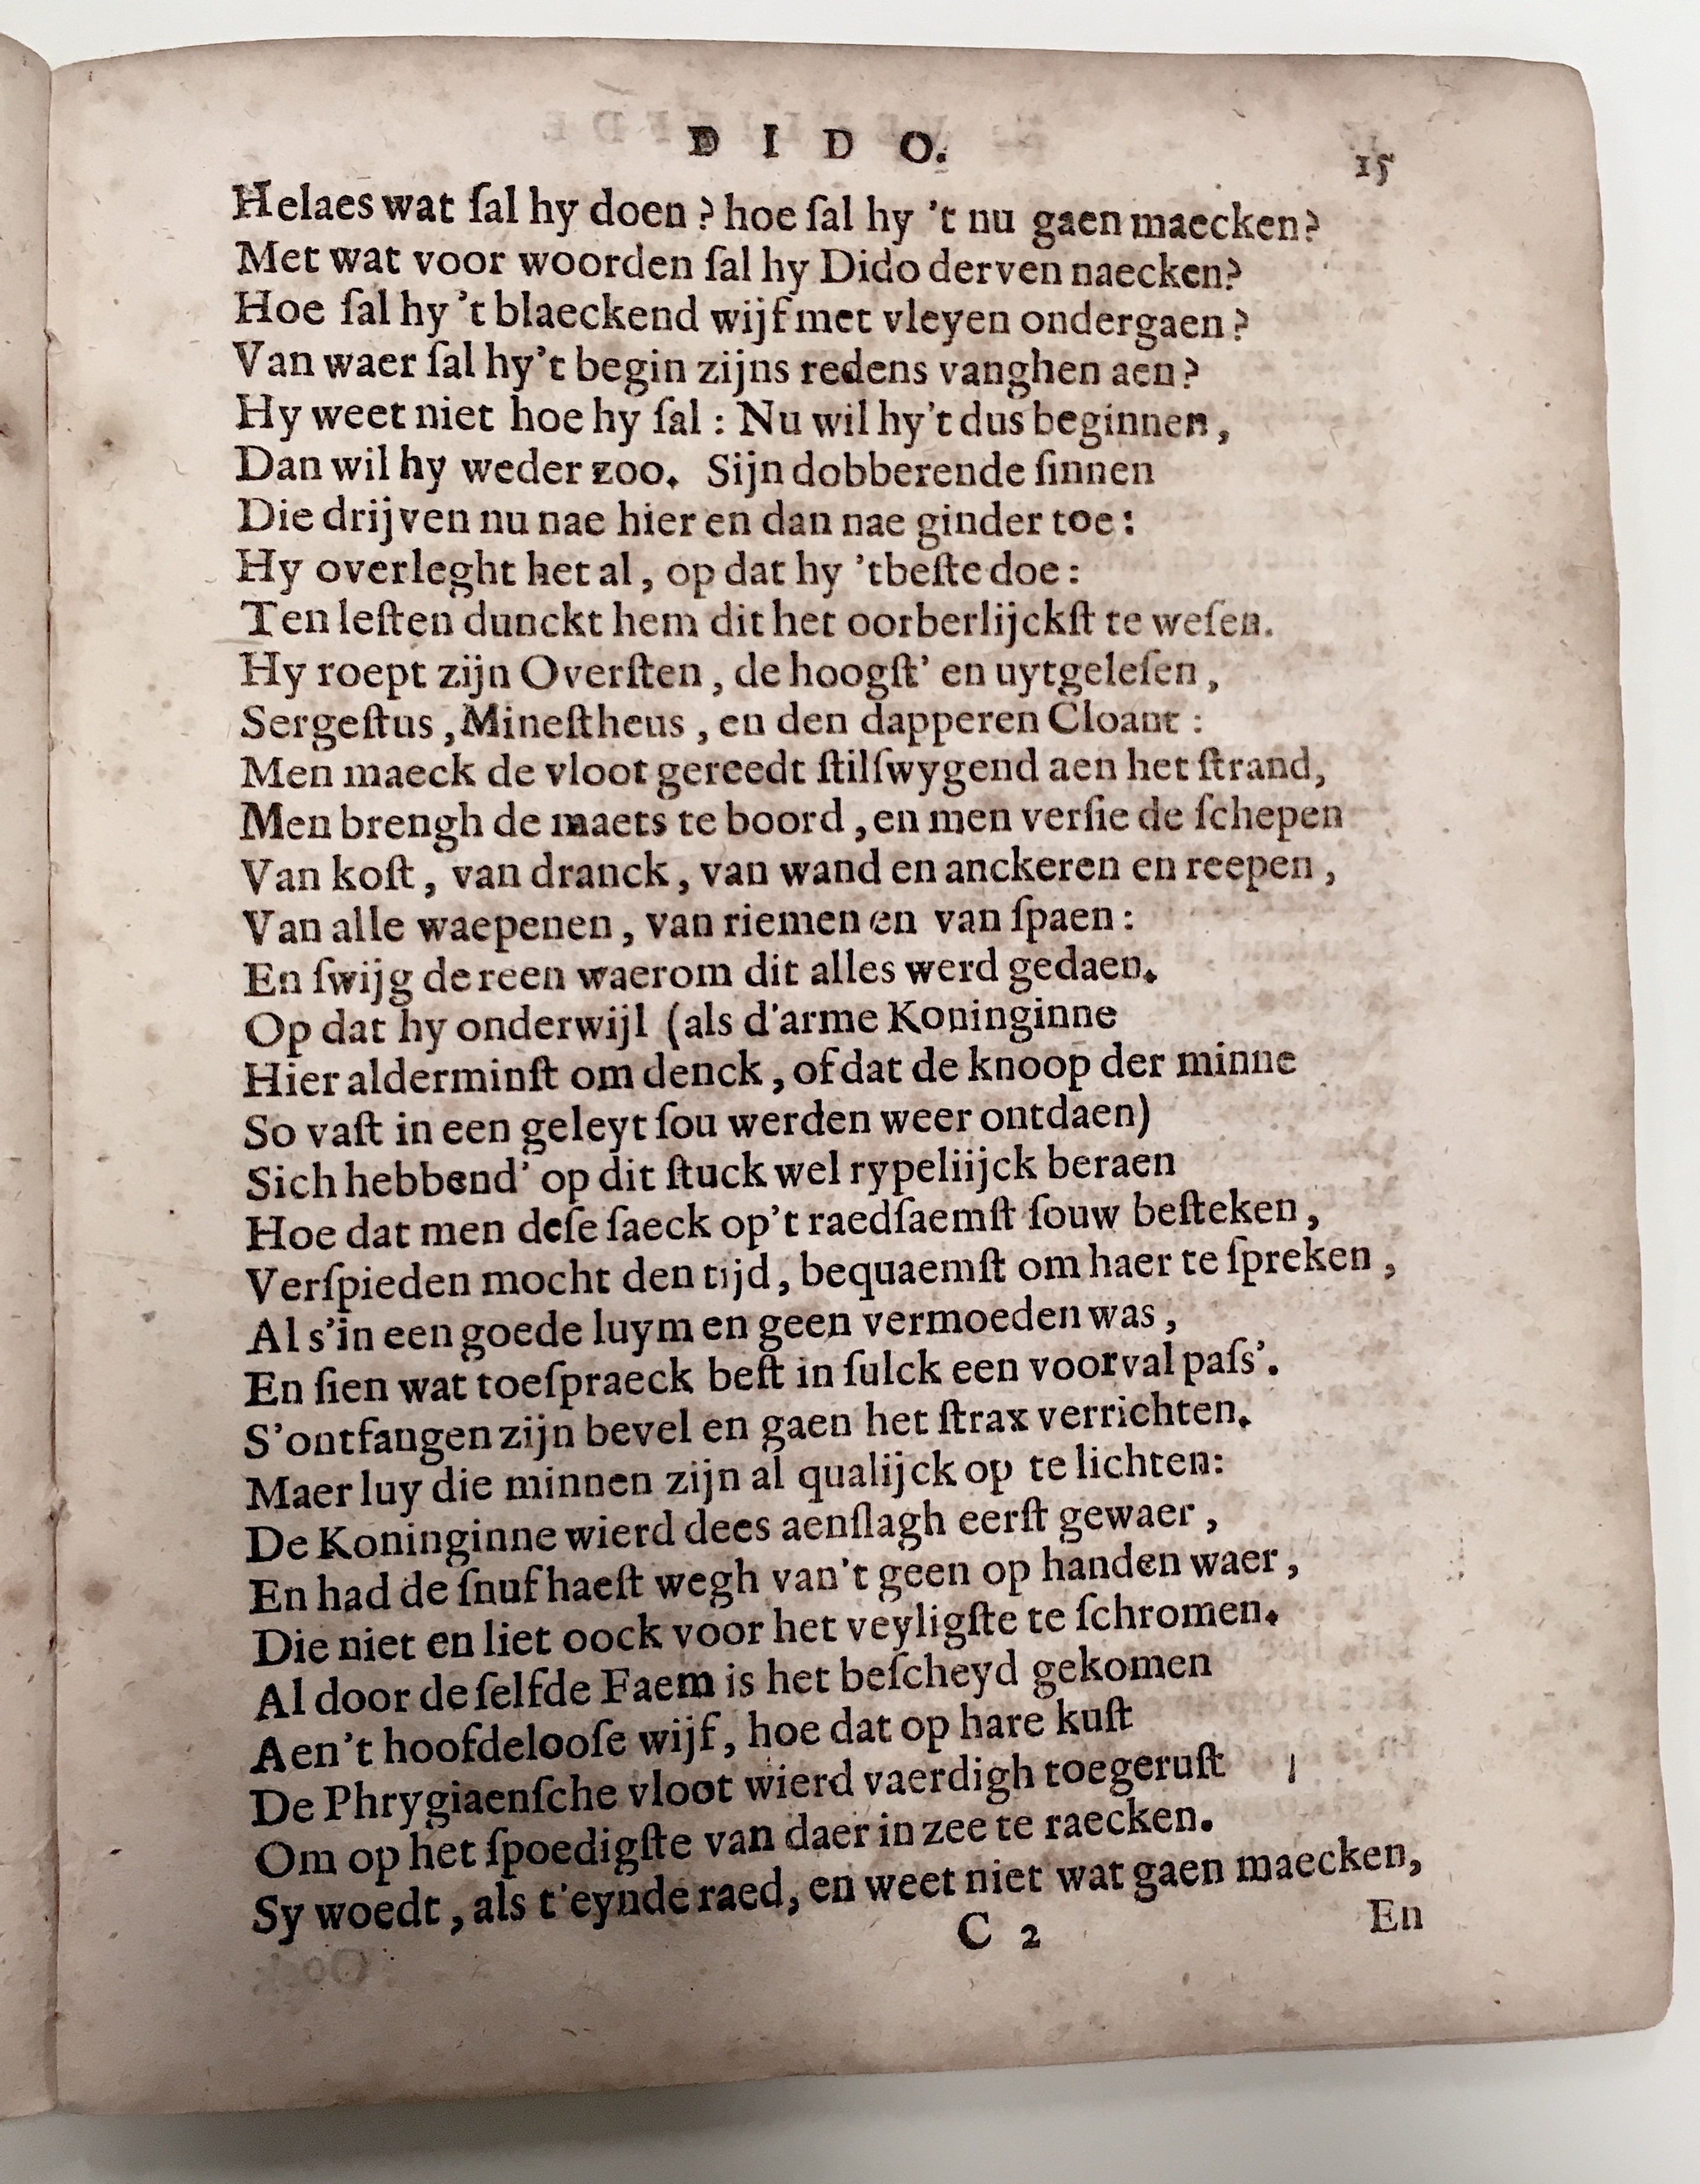 D I D O.
15
Helaes wat ſal hy doen ? hoe ſal hy 't nu gaen maecken?
Met wat voor woorden ſal hy Dido derven naecken?
Hoe ſal hy 't blaeckend wijf met vleyen ondergaen?
Van waer ſal hy't begin zijns redens vanghen aen?
Hy weet niet hoe hy ſal : Nu wil hy't dus beginnen,
Dan wil hy weder zoo. Sijn dobberende ſinnen
Die drijven nu nae hier en dan nae ginder toe:
Hy overleght het al, op dat hy 'tbeſte doe:
Ten leſten dunckt hem dit het oorberlijckſt te weſen.
Hy roept zijn Overſten, de hoogſt' en uytgeleſen,
Sergeſtus, Mineſtheus, en den dapperen Cloant:
Men maeck de vloot gereedt ſtilſwygend aen het ſtrand,
Men brengh de maets te boord, en men verſie de ſchepen
Van koſt, van dranck, van wand en anckeren en reepen,
Van alle waepenen, van riemen en van ſpaen:
En ſwijg de reen waerom dit alles werd gedaen.
Op dat hy onderwijl (als d'arme Koninginne
Hier alderminſt om denck, of dat de knoop der minne
So vaſt in een geleyt ſou werden weer ontdaen)
Sich hebbend' op dit ſtuck wel rypeliijck beraen
Hoe dat men deſe ſaeck op't raedſaemſt ſouw beſteken,
Verſpieden mocht den tijd, bequaemſt om haer te ſpreken,
Al s'in een goede luym en geen vermoeden was,
En ſien wat toeſpraeck beſt in ſulck een voorval paſs'.
S'ontfangen zijn bevel en gaen het ſtrax verrichten.
Maer luy die minnen zijn al qualijck op te lichten:
De Koninginne wierd dees aenſlagh eerſt gewaer,
En had de ſnuf haeſt wegh van't geen op handen waer,
Die niet en liet oock voor het veyligſte te ſchromen.
Al door de ſelfde Faem is het beſcheyd gekomen
Aen't hoofdelooſe wijf, hoe dat op hare kuſt
De Phrygiaenſche vloot wierd vaerdigh toegeruſt
Om op het ſpoedigſte van daer in zee te raecken.
Sy woedt, als t'eynde raed, en weet niet wat gaen maecken,
C 2
En